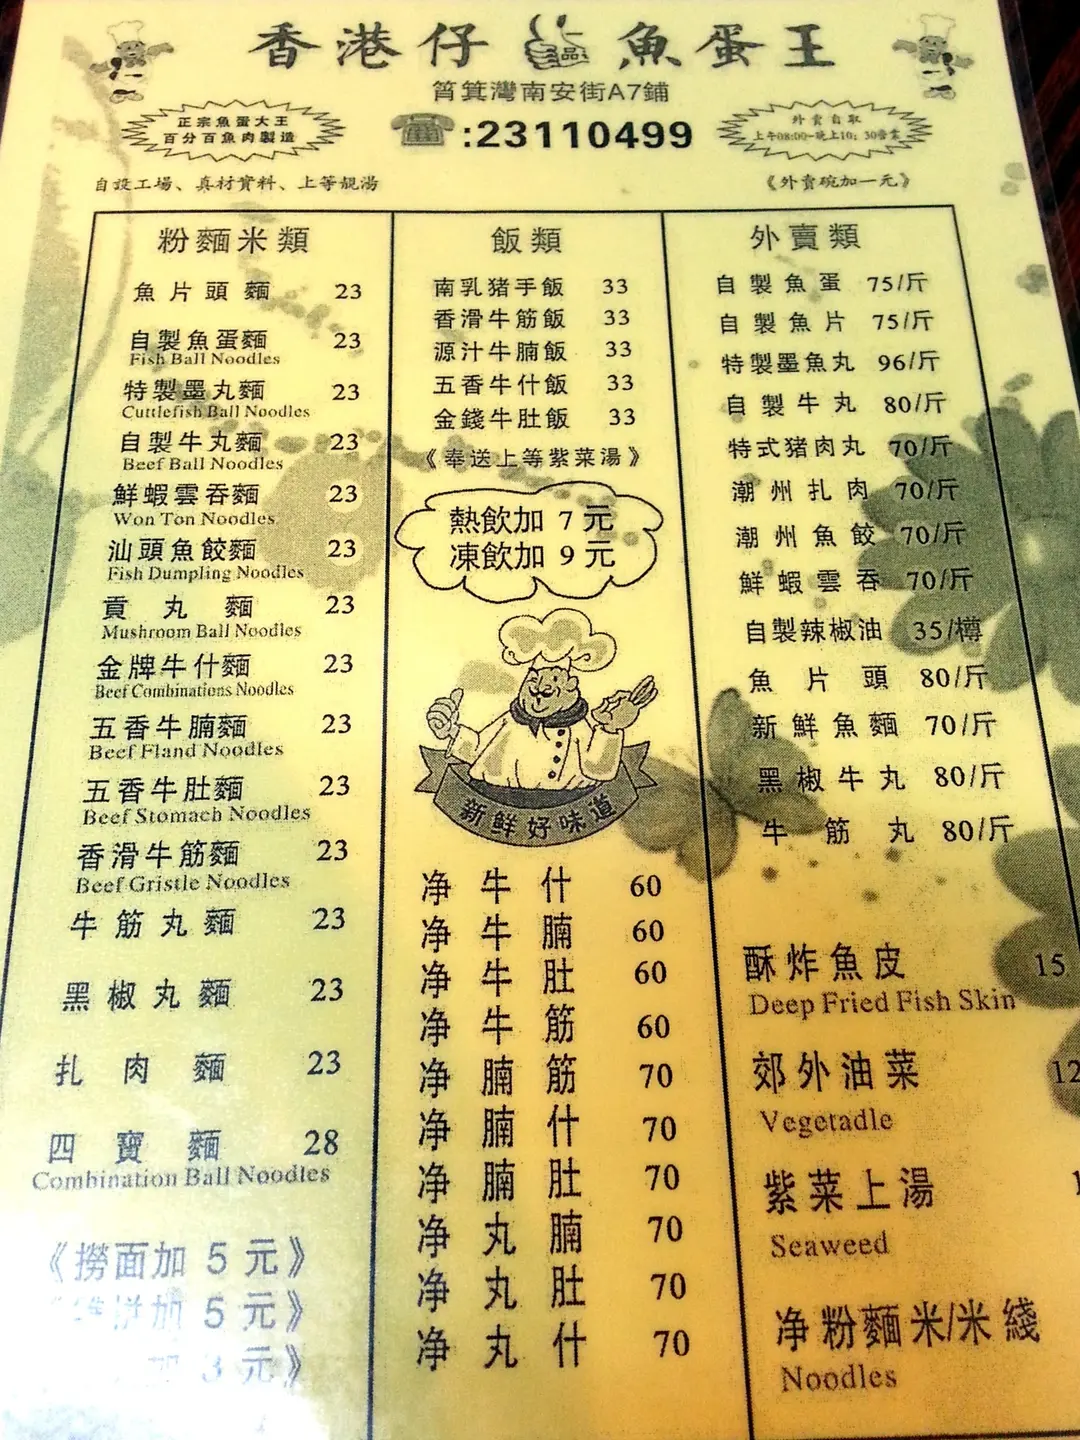 香港仔 魚蛋王
筲箕灣南安街A7鋪
正宗魚蛋大王
百分百魚肉製造
:23110499
外賣自取
上午08:00-晚上10:30營業
自設工場、真材實料、上等靚湯
《外賣碗加一元》
粉麵米類
魚片頭麵 23
自製魚蛋麵 23
Fish Ball Noodles
特製墨丸麵 23
Cuttlefish Ball Noodles
自製牛丸麵 23
Beef Ball Noodles
鮮蝦雲吞麵 23
Won Ton Noodles
汕頭魚餃麵 23
Fish Dumpling Noodles
貢丸麵 23
Mushroom Ball Noodles
金牌牛什麵 23
Beef Combinations Noodles
五香牛腩麵 23
Beef Fland Noodles
五香牛肚麵 23
Beef Stomach Noodles
香滑牛筋麵 23
Beef Gristle Noodles
牛筋丸麵 23
黑椒丸麵 23
扎肉麵 23
四寶麵 28
Combination Ball Noodles
《撈面加 5 元》
加 5 元》
加 3 元》
飯類
南乳猪手飯 33
香滑牛筋飯 33
源汁牛腩飯 33
五香牛什飯 33
金錢牛肚飯 33
《奉送上等紫菜湯》
熱飲加 7 元
凍飲加 9 元
新鮮好味道
净牛什 60
净牛腩 60
净牛肚 60
净牛筋 60
净腩筋 70
净腩什 70
净腩肚 70
净丸腩 70
净丸肚 70
净丸什 70
外賣類
自製魚蛋 75/斤
自製魚片 75/斤
特製墨魚丸 96/斤
自製牛丸 80/斤
特式猪肉丸 70/斤
潮州扎肉 70/斤
潮州魚餃 70/斤
鮮蝦雲吞 70/斤
自製辣椒油 35/樽
魚片頭 80/斤
新鮮魚麵 70/斤
黑椒牛丸 80/斤
牛筋丸 80/斤
酥炸魚皮 15
Deep Fried Fish Skin
郊外油菜 12
Vegetadle
紫菜上湯
Seaweed
净粉麵米/米綫
Noodles